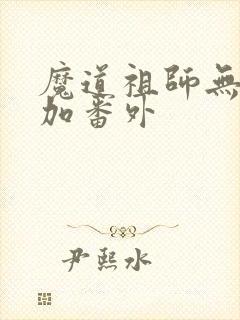 魔道祖師無
加番外
尹熙水